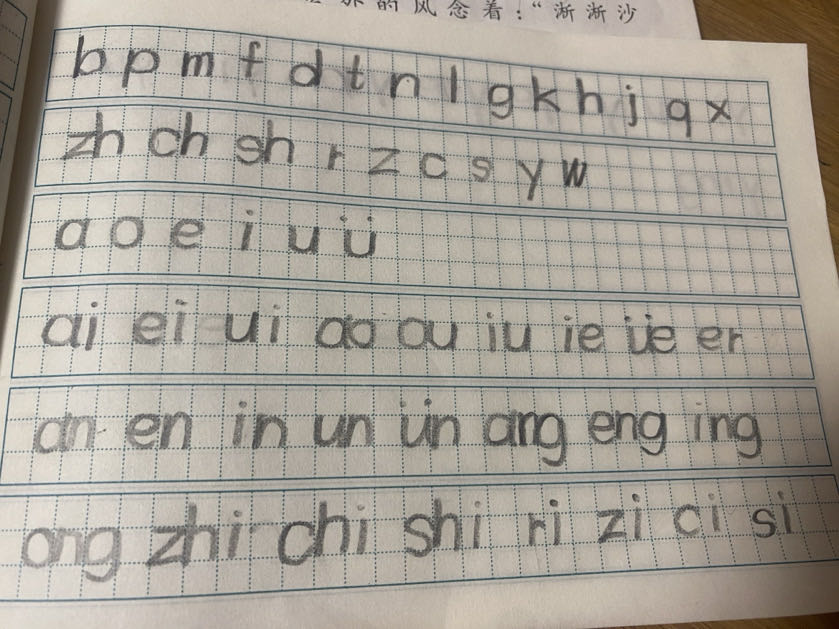 的风念着：“渐渐沙
b p m f d t n l g k h j q x
zh ch sh r z c s y w
a o e i u ü
ai ei ui ao ou iu ie üe er
an en in un ün ang eng ing
ong zhi chi shi ri zi ci si